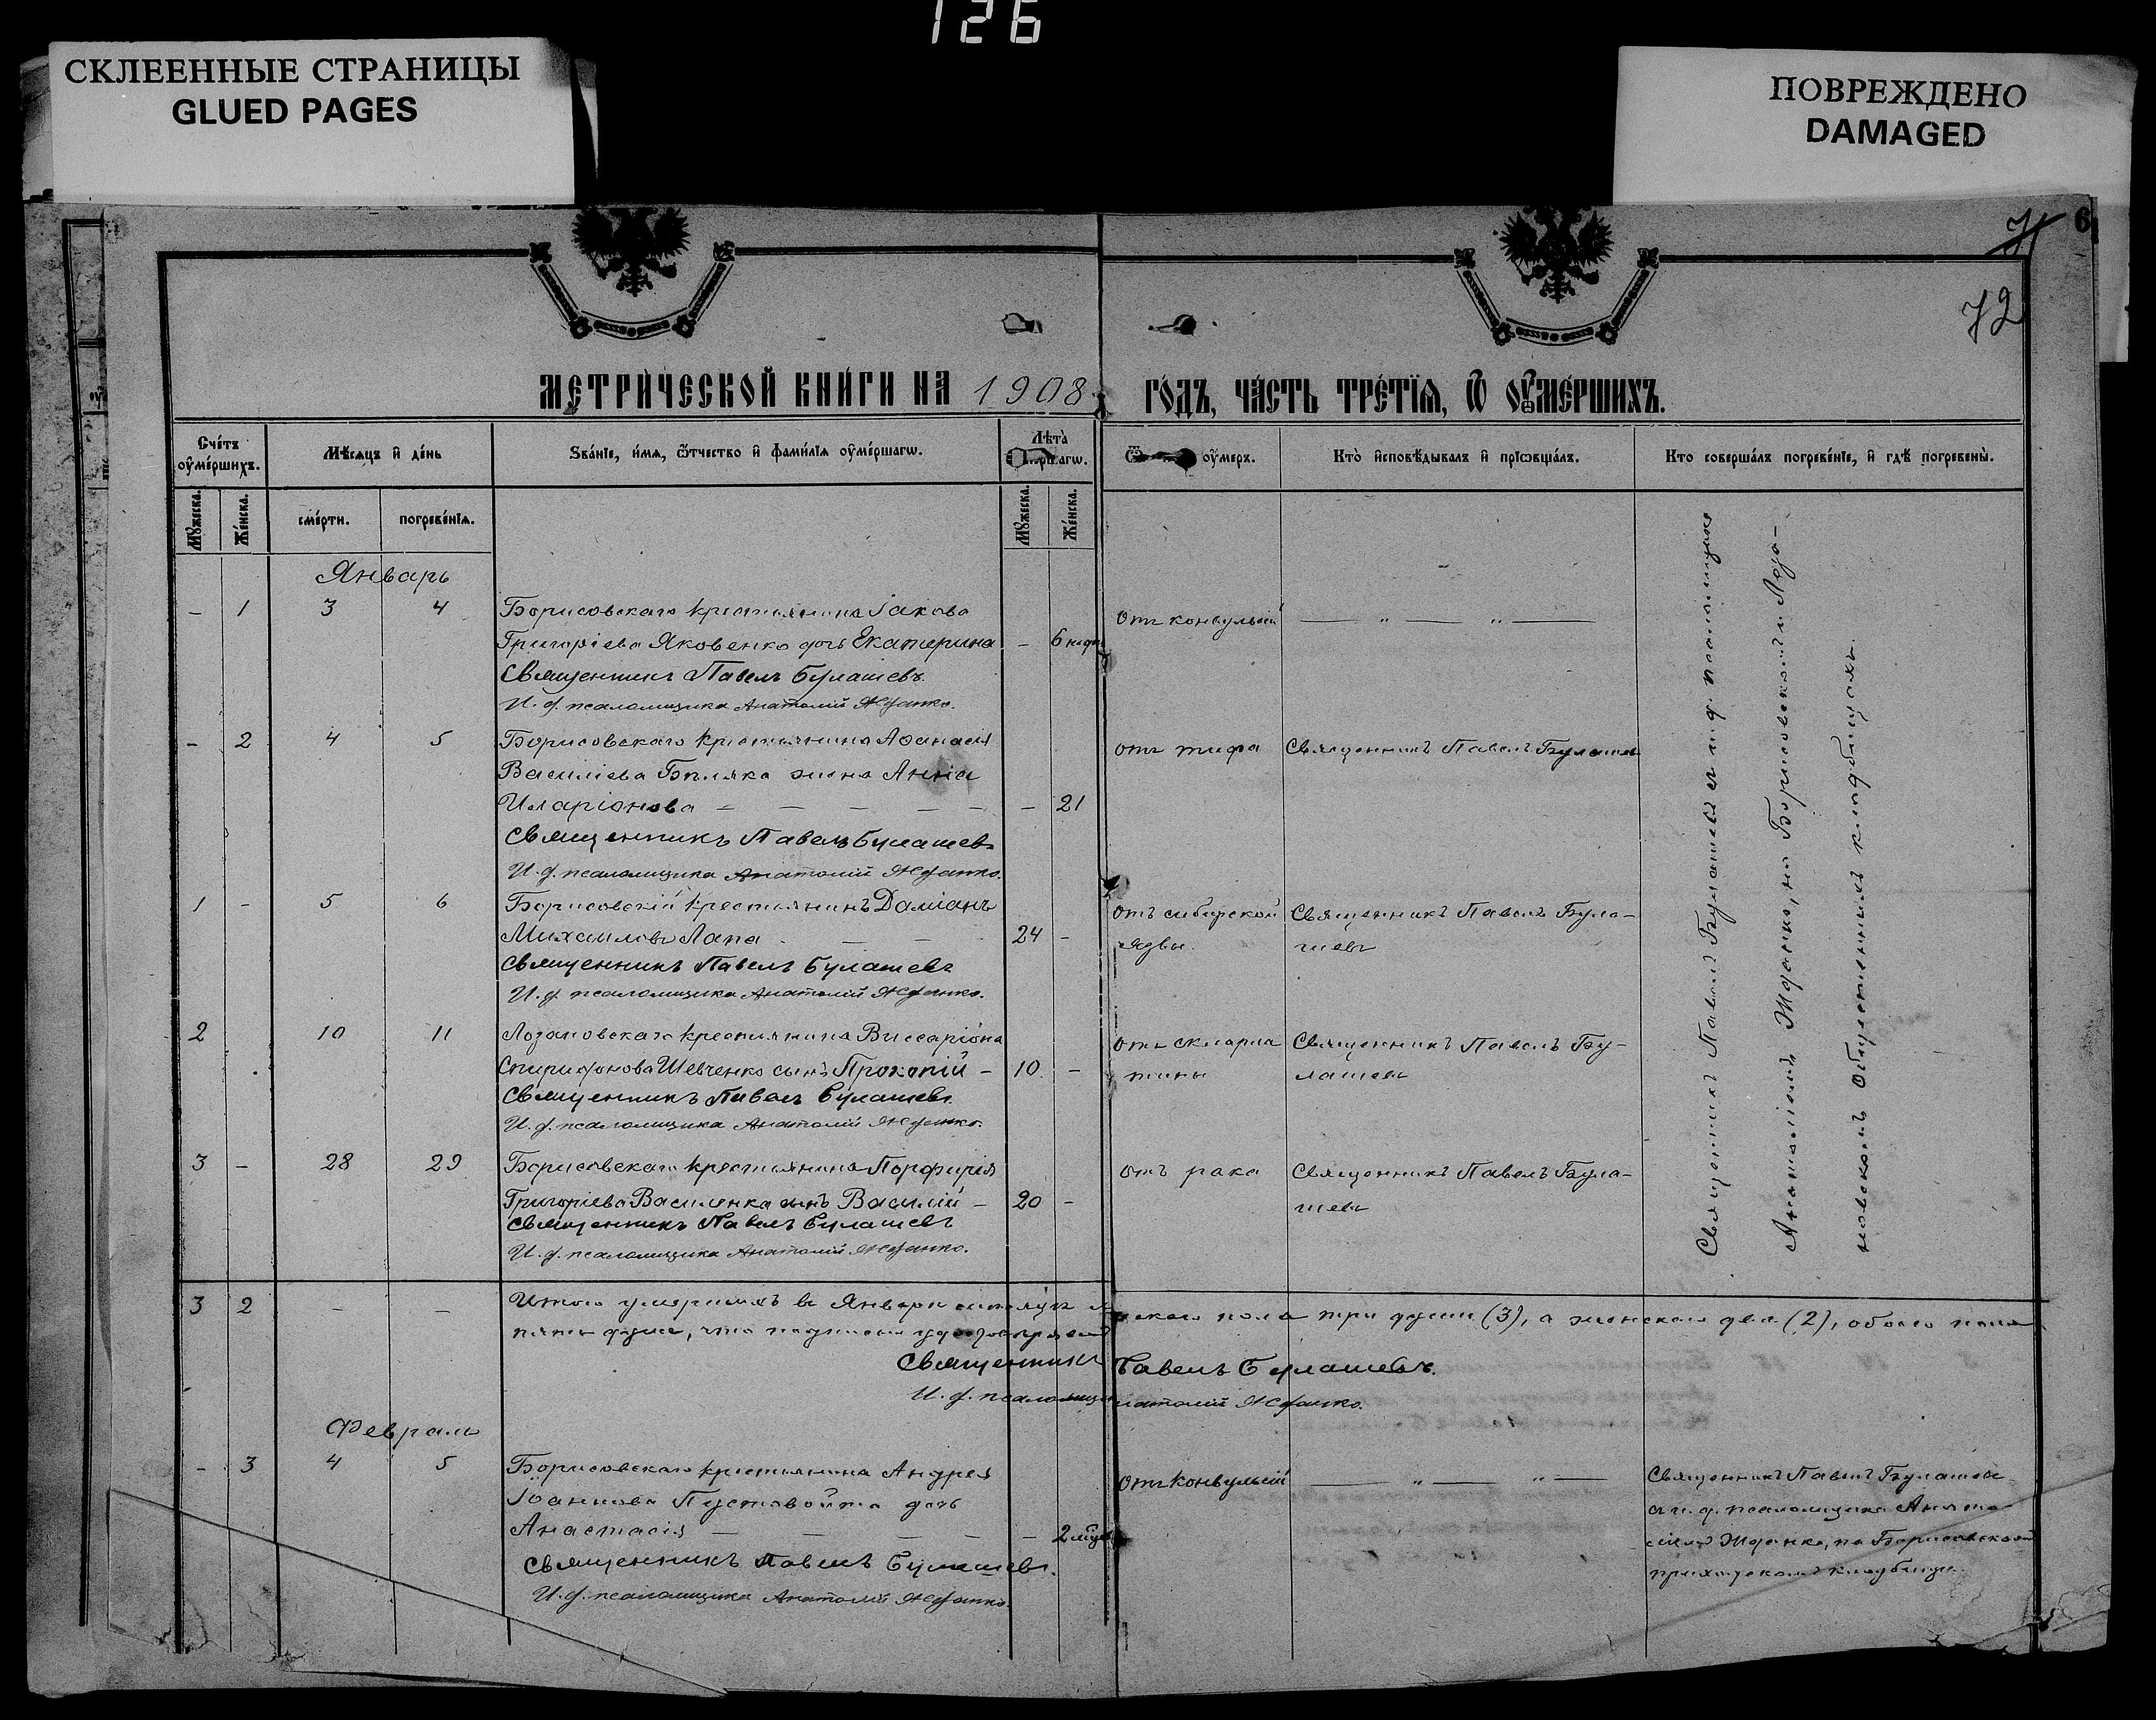 126
СКЛЕЕННЫЕ СТРАНИЦЫ
GLUED PAGES
ПОВРЕЖДЕНО
DAMAGED
71
6
72
МЕТРИЧЕСКОЙ КНИГИ НА 1908 ГОДЪ, ЧАСТЬ ТРЕТІЯ, Ѿ ОУМЕРШИХЪ.
Счетъ оумершихъ.
Мѣсяцъ и день
Званіе, имя, отчество и фамилія оумершагѡ.
Лѣта
оумеръ.
Кто исповѣдывалъ и пріѡбщалъ.
Кто совершалъ погребеніе, и гдѣ погребены.
Мужеска.
Женска.
смерти.
погребенія.
Мужеска.
Женска.
Январь
- 1 3 4 Борисовскаго крестьянина Іакова
Григоріева Яковенко дочь Екатерина - 6
Священникъ Павелъ Булашевъ.
И. д. псаломщика Анатолій Жданко.
отъ конвульсій — " — " —
- 2 4 5 Борисовскаго крестьянина Аѳанасія
Василіева Бѣляка жена Анна
Иларіонова - - - - - - 21
Священникъ Павелъ Булашевъ
И. д. псаломщика Анатолій Жданко.
отъ тифа Священникъ Павелъ Булашевъ
1 - 5 6 Борисовскій крестьянинъ Даміанъ
Михаиловъ Лапа - - 24 -
Священникъ Павелъ Булашевъ
И. д. псаломщика Анатолій Жданко.
отъ сибирской Священникъ Павелъ Була-
язвы. шевъ
2 10 11 Лозановскаго крестьянина Виссаріона
Спиридонова Шевченко сынъ Прокопій - 10 -
Священникъ Павелъ Булашевъ
И. д. псаломщика Анатолій Жданко.
отъ скарла- Священникъ Павелъ Бу-
тины лашевъ
3 - 28 29 Борисовскаго крестьянина Порфирія
Григоріева Василенка сынъ Василій - 20 -
Священникъ Павелъ Булашевъ
И. д. псаломщика Анатолій Жданко.
отъ рака Священникъ Павелъ Була-
шевъ
Священникъ Павелъ Булашевъ и и. д. псаломщика
Анатоліемъ Жданко, на Борисовскомъ и Лоза-
новскомъ кладбищахъ.
3 2 - - Итого умершихъ въ Январѣ пола три души (3), а женскаго двѣ (2), обоего пола
пять душъ, что подписомъ
Священникъ Павелъ Булашевъ.
И. д. Анатолій Жданко.
Февраль
- 3 4 5 Борисовскаго крестьянина Андрея
Іоаннова Пустовойта дочь
Анастасія - - - - - 2
Священникъ Павелъ Булашевъ.
И. д. псаломщика Анатолій Жданко.
отъ конвульсій — " — " —
Священникъ Павелъ Булашевъ
и и. д. псаломщика Анато-
ліемъ Жданко, на Борисовскомъ
приходскомъ кладбищѣ.